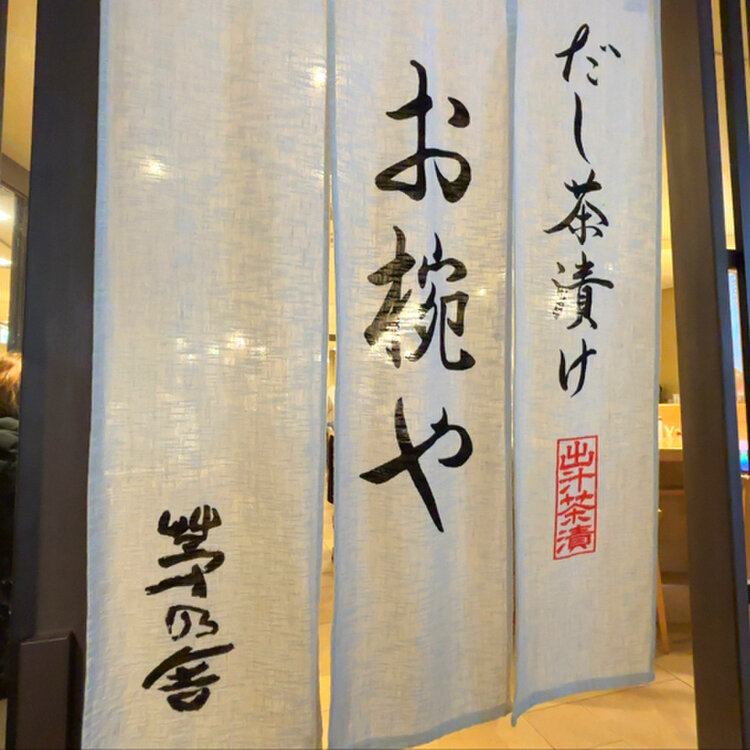 だし茶漬け
出汁茶漬
お椀や
茅乃舎